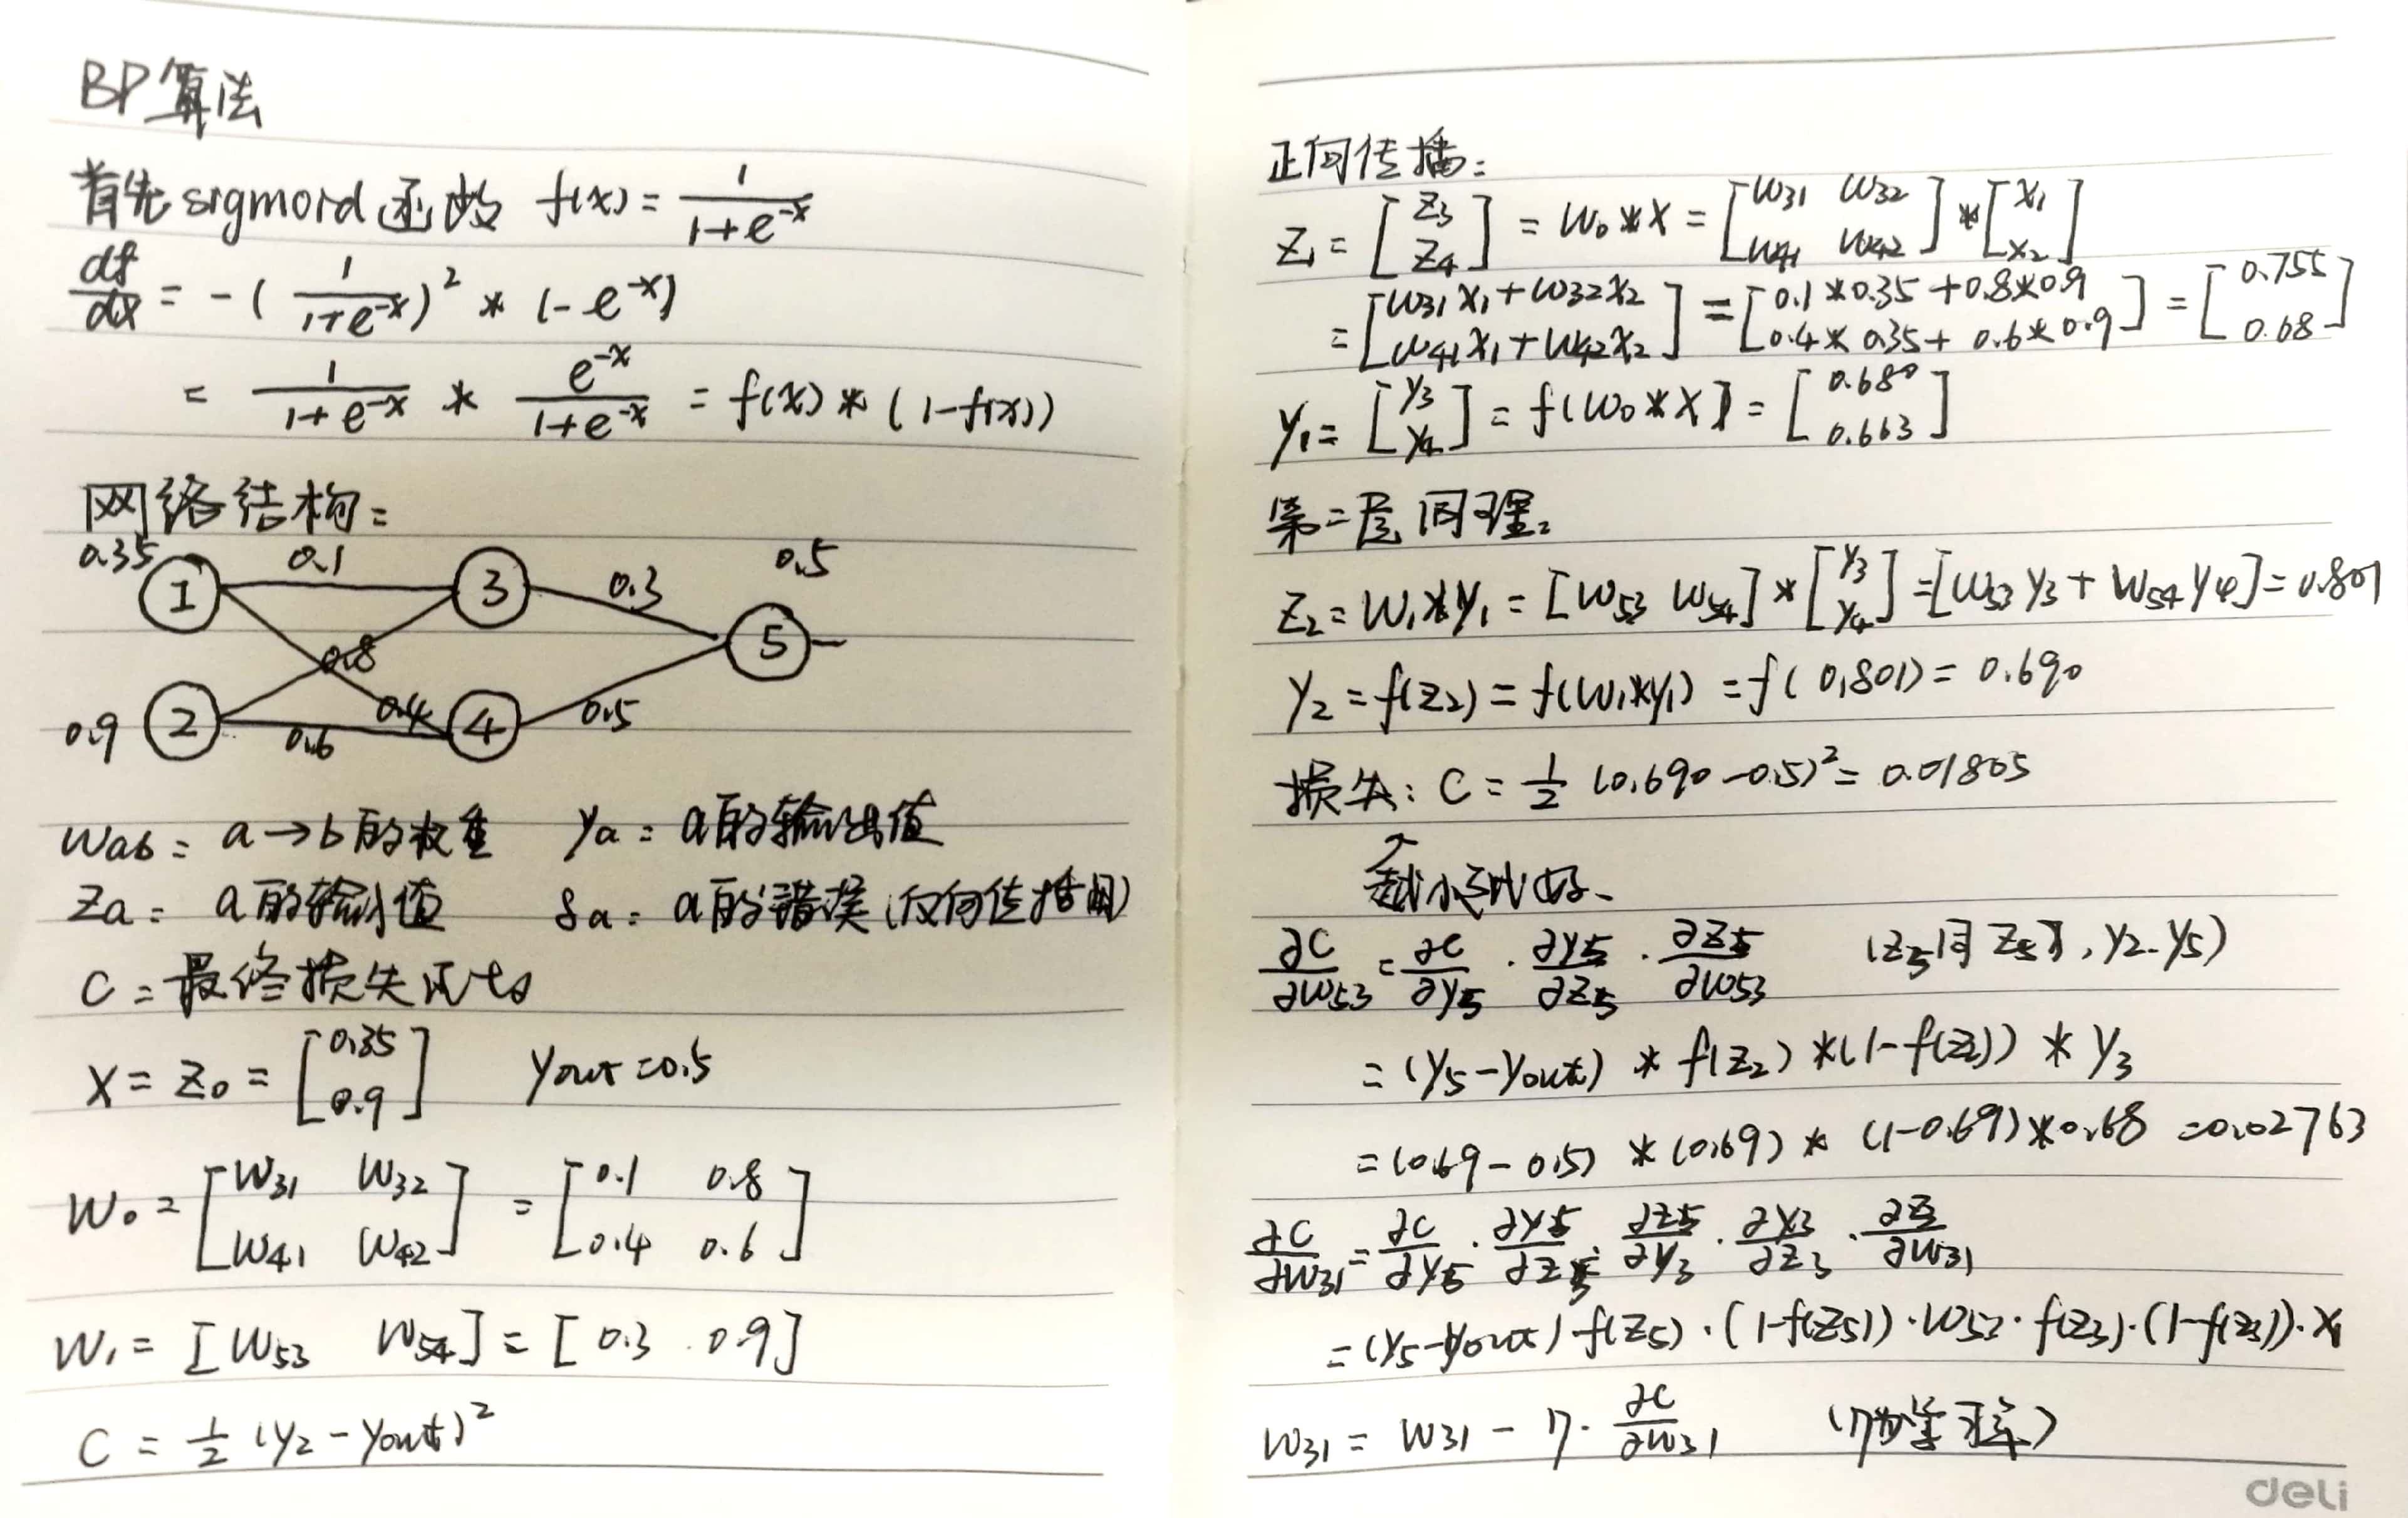 BP算法
首先sigmoid函数 f(x) = 1/(1+e^-x)
df/dx = -(1/(1+e^-x))^2 * (-e^-x)
= 1/(1+e^-x) * e^-x/(1+e^-x) = f(x) * (1-f(x))
网络结构:
0.35 1 0.1 3 0.3 0.5
0.8 5
0.9 2 0.6 0.4 4 0.5
Wab = a→b的权重 ya = a的输出值
Za = a的输入值 δa = a的错误(反向传播用)
C = 最终损失
X = Z0 = [0.35; 0.9] yout = 0.5
W0 = [W31 W32; W41 W42] = [0.1 0.8; 0.4 0.6]
W1 = [W53 W54] = [0.3 0.9]
C = 1/2 (y2 - yout)^2
正向传播:
Z1 = [Z3; Z4] = W0 * X = [W31 W32; W41 W42] * [X1; X2]
= [W31X1 + W32X2; W41X1 + W42X2] = [0.1*0.35 + 0.8*0.9; 0.4*0.35 + 0.6*0.9] = [0.755; 0.68]
y1 = [y3; y4] = f(W0 * X) = [0.680; 0.663]
第二层同理:
Z2 = W1*y1 = [W53 W54] * [y3; y4] = [W53 y3 + W54 y4] = 0.801
y2 = f(Z2) = f(W1*y1) = f(0.801) = 0.690
损失: C = 1/2 (0.690 - 0.5)^2 = 0.01805
↑
越小越好.
∂C/∂W53 = ∂C/∂y5 · ∂y5/∂Z5 · ∂Z5/∂W53 , y2-y5)
= (y5 - yout) * f(Z2) * (1-f(Z2)) * y3
= (0.69 - 0.5) * (0.69) * (1-0.69) * 0.68 = 0.02763
∂C/∂W31 = ∂C/∂y5 · ∂y5/∂Z5 · ∂Z5/∂y3 · ∂y3/∂Z3 · ∂Z3/∂W31
= (y5 - yout) · f(Z5) · (1-f(Z5)) · W53 · f(Z3) · (1-f(Z3)) · X1
W31 = W31 - η · ∂C/∂W31 (η为学习率)
deli